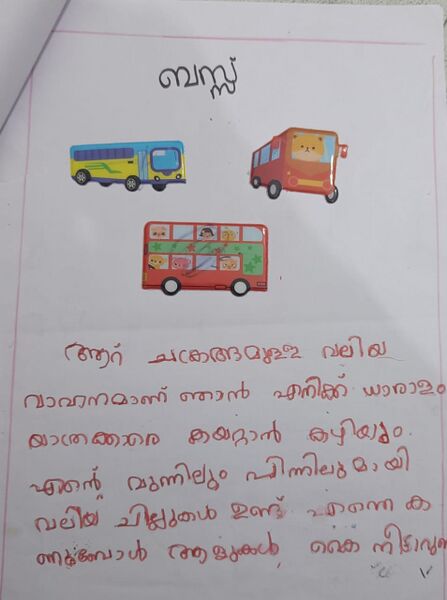 ബസ്സ്
ആറ് ചക്രങ്ങളുള്ള വലിയ
വാഹനമാണ് ഞാൻ എനിക്ക് ധാരാളം
യാത്രക്കാരെ കയറ്റാൻ കഴിയും.
എന്റെ മുന്നിലും പിന്നിലുമായി
വലിയ ചില്ലുകൾ ഉണ്ട് എന്നെ കാ
ണുമ്പോൾ ആളുകൾ കൈ